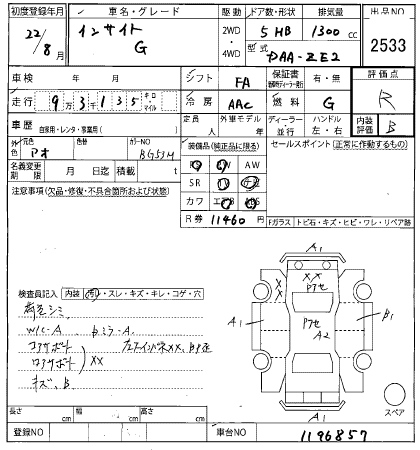 初度登録年月 車名・グレード 駆動 ドア数・形状 排気量 出品NO
22/8月 インサイト G 2WD・4WD 5 HB 1300cc 2533
型式 DAA-ZE2
車検 年 月 シフト FA 保証書 有・無 評価点
走行 93135 キロ・マイル 冷房 AAC 燃料 G R
車歴 自家用・レンタ・事業用( ) 定員 人 外車モデル 年 ディーラー 並行 ハンドル 左・右 内装評価 B
外色 元色 アオ 色替 カラーNO BG53M 装備品(純正品に限る) セールスポイント(正常に動作するもの)
名義変更期限 月 日迄 積載 t AW
注意事項(欠品・修復・不具合箇所および状態) SR
カワ エアB ABS
R券 11460 Fガラス トビ石・キズ・ヒビ・ワレ・リペア跡
検査員記入 内装 汚・スレ・キズ・キレ・コゲ・穴
A1
XX
XX
Pアセ
Pアセ
A2
A1
B1
A1
スペア
W/C-A
コアサポート
ロアサポート XX
キズ、B
長さ cm 幅 cm 高さ cm
登録NO 車台NO 1196857